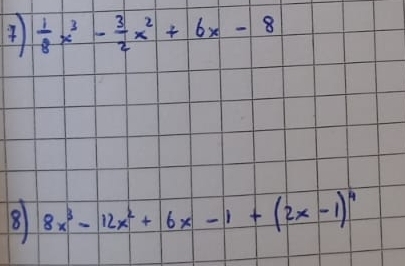 7) 1/8 x³ - 3/2 x² + 6x - 8
8) 8x³ - 12x² + 6x - 1 + (2x - 1)⁴